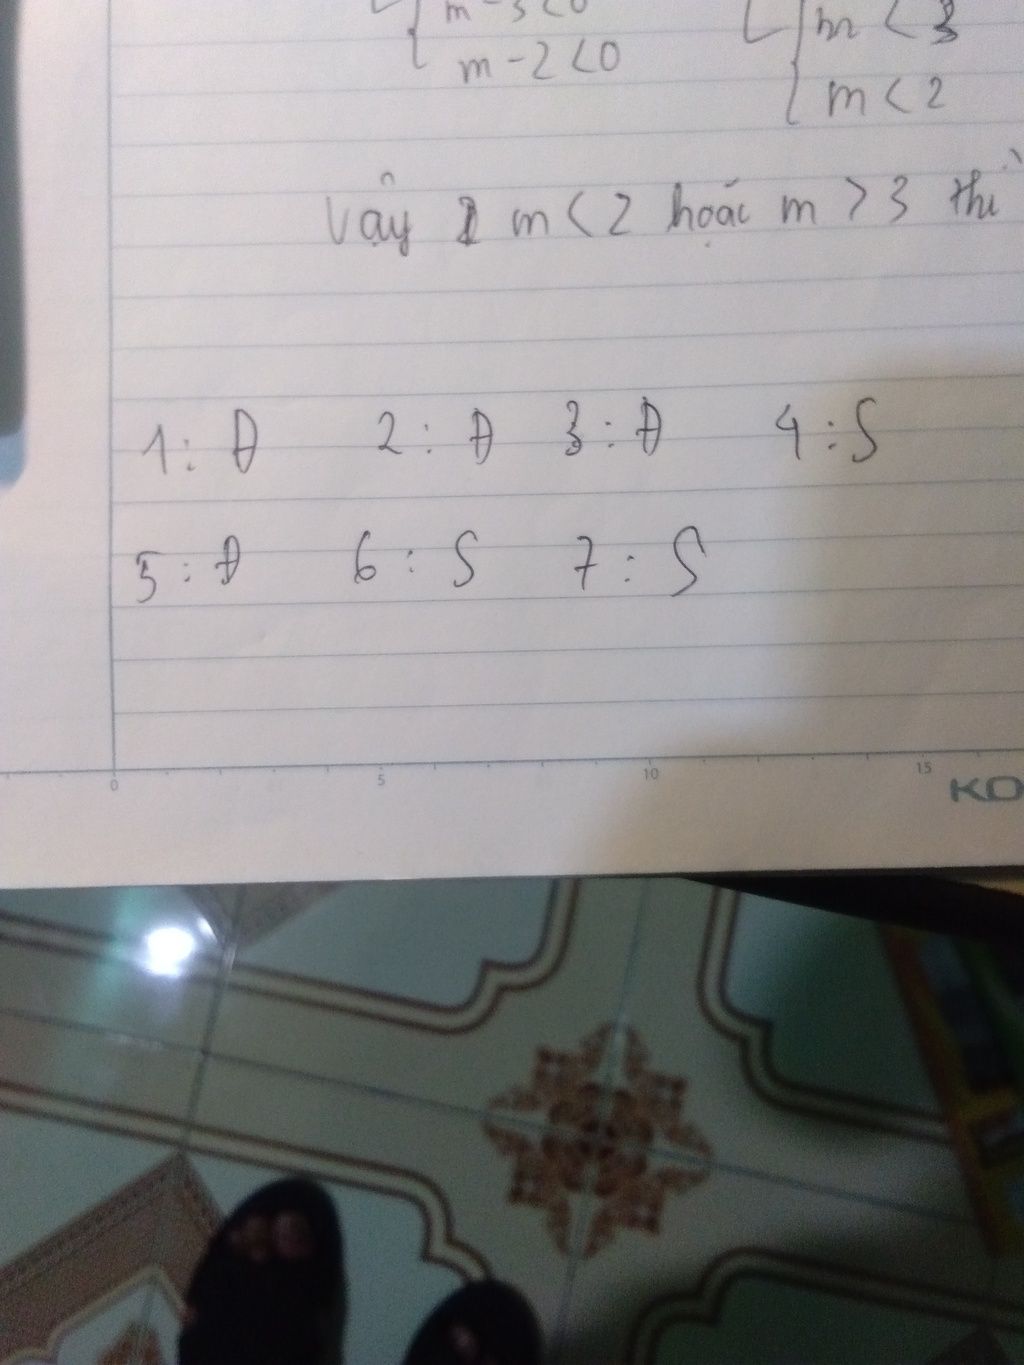 m - 3 < 0
m < 3
m - 2 < 0
m < 2
Vậy m < 2 hoặc m > 3 thì
1 : Đ 2 : Đ 3 : Đ 4 : S
5 : Đ 6 : S 7 : S
0 5 10 15
KO